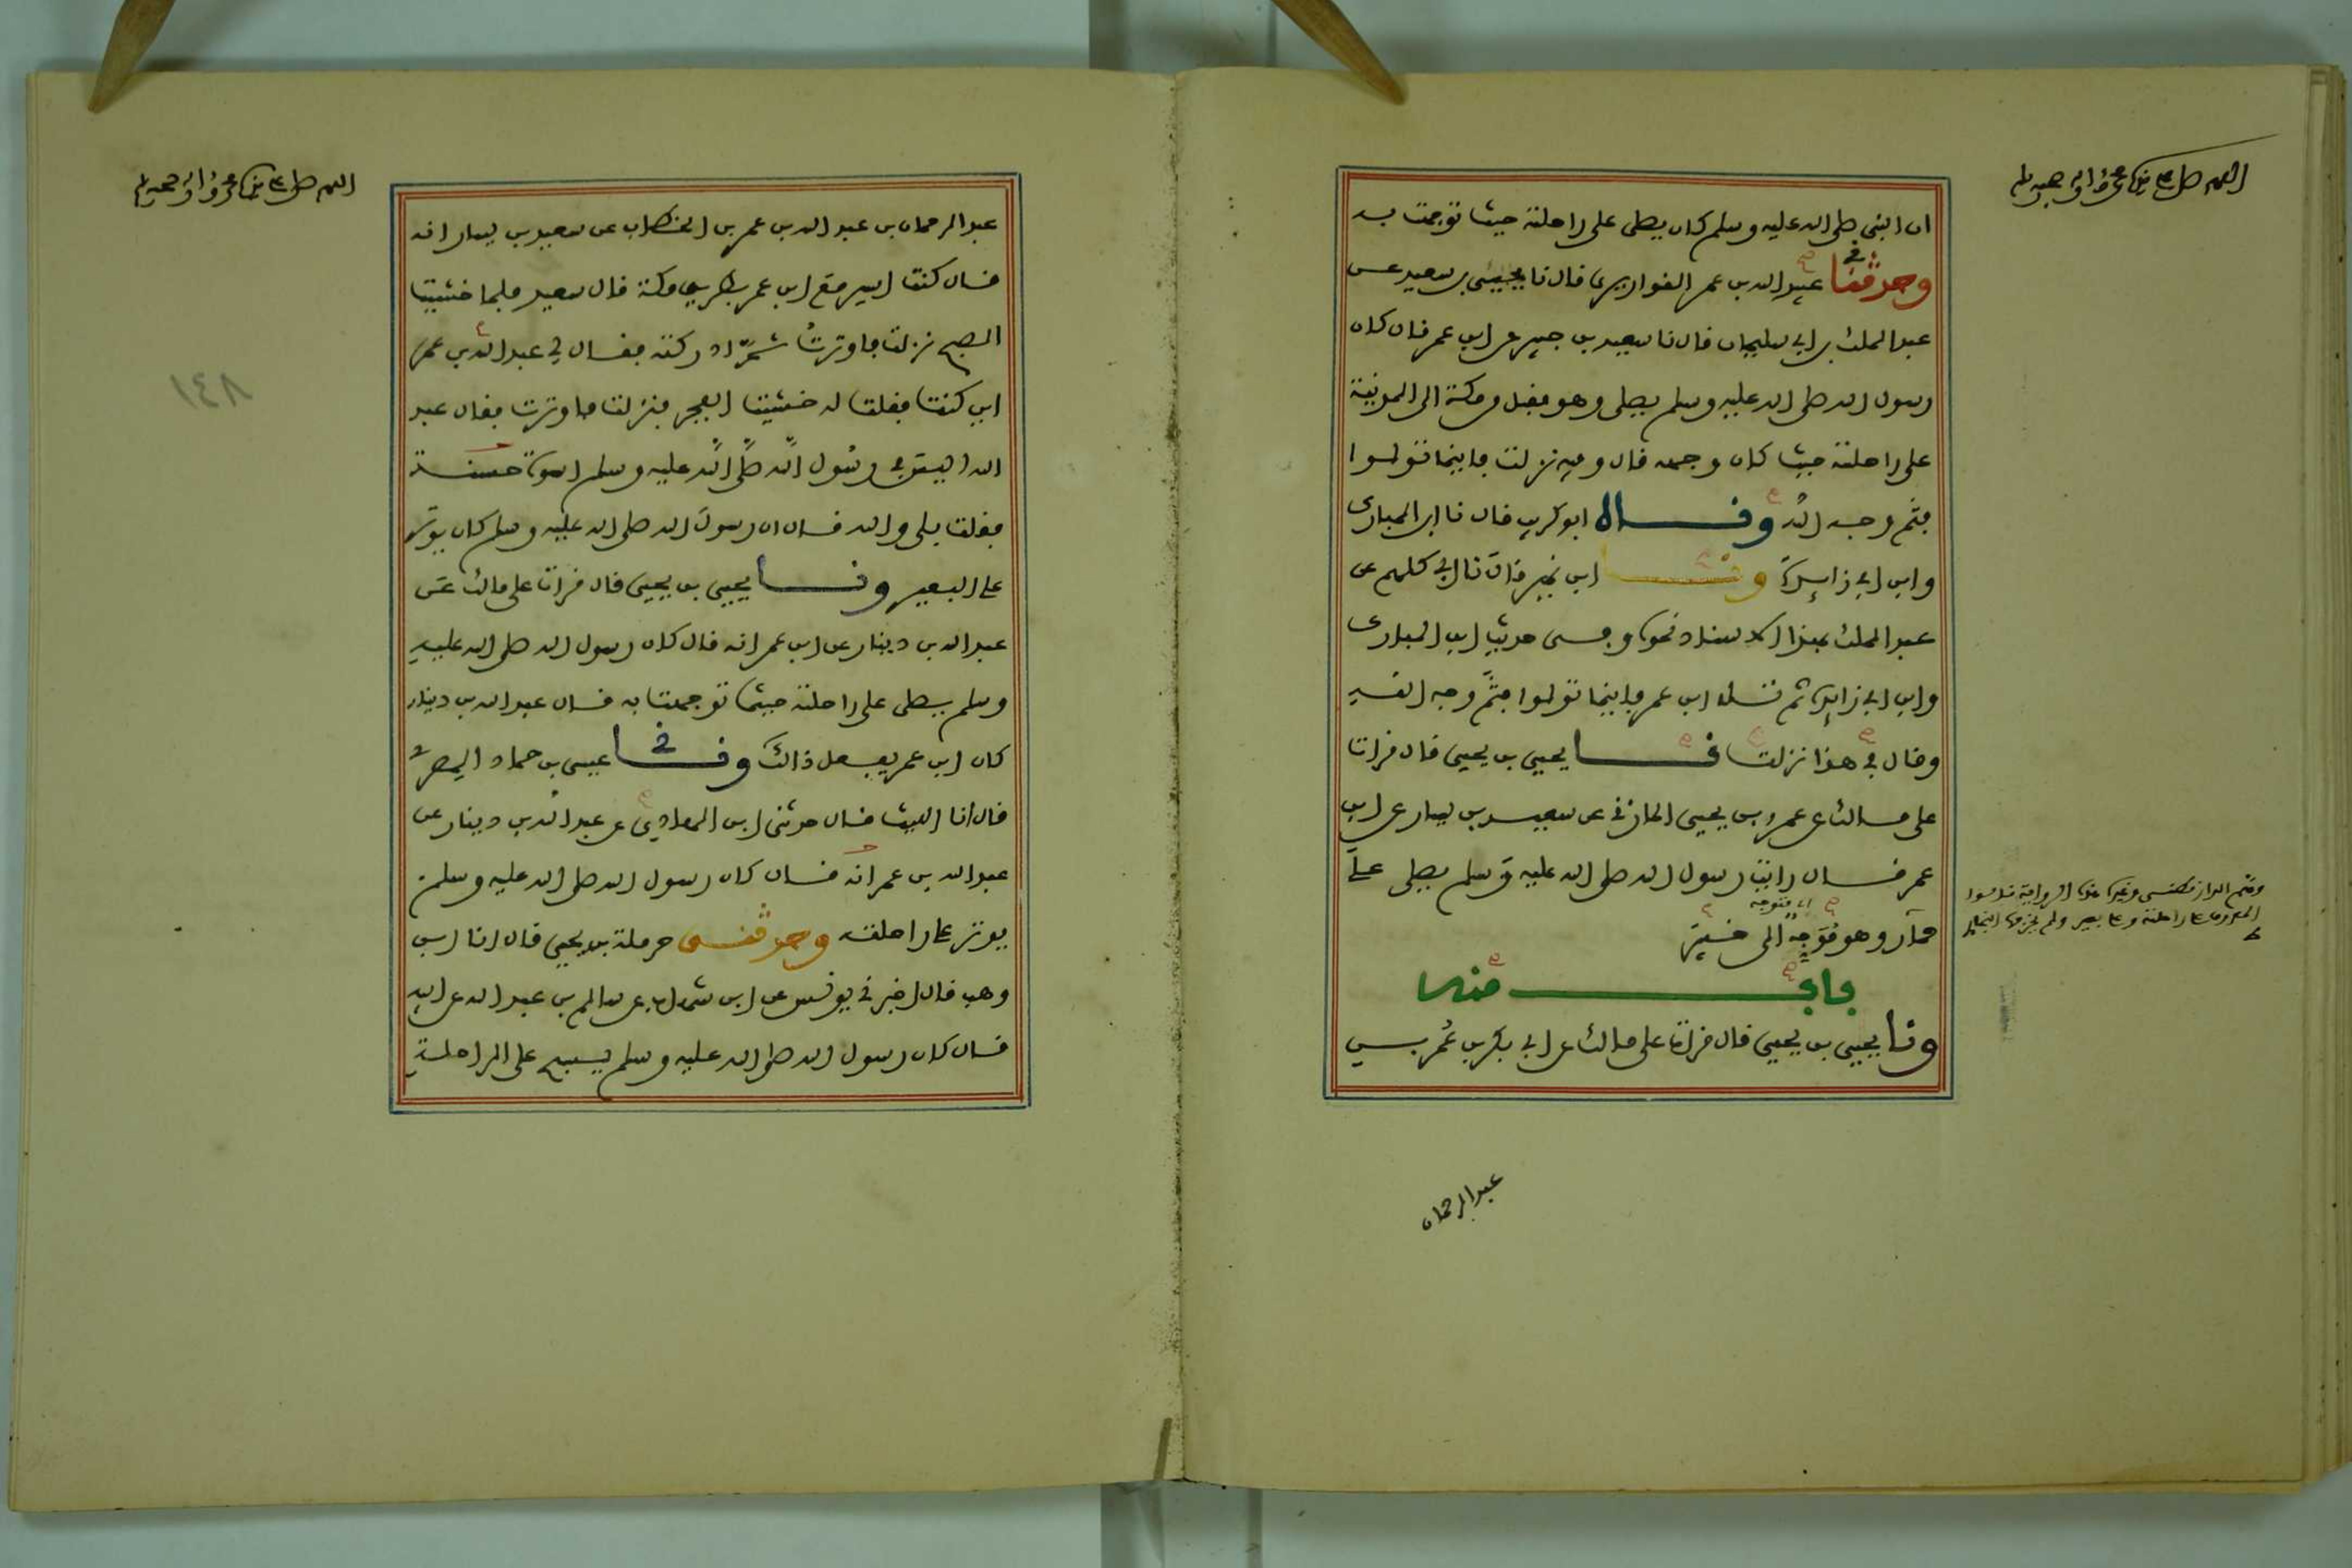 اللهم صل على سيدنا محمد وآله وصحبه وسلم
ان النبي صلى الله عليه وسلم كان يصلي على راحلته حيث توجهت به
وحدثنا عبيد الله بن عمر القواريري قال نا يحيى بن سعيد عن
عبد الملك بن ابي سليمان قال نا سعيد بن جبير عن ابن عمر قال كان
رسول الله صلى الله عليه وسلم يصلي وهو مقبل من مكة الى المدينة
على راحلته حيث كان وجهه قال وفيه نزلت فاينما تولوا
فثم وجه الله وقال ابو كريب قال نا ابن المبارك
وابن ابي زايدة ونا ابن نمير قال نا ابي كلهم عن
عبد الملك بهذا الاسناد نحوه وفي حديث ابن المبارك
وابن ابي زايدة ثم تلا ابن عمر فاينما تولوا فثم وجه الله
وقال في هذا نزلت نا يحيى بن يحيى قال قرات
على مالك عن عمرو بن يحيى المازني عن سعيد بن يسار عن ابن
عمر قال رايت رسول الله صلى الله عليه وسلم يصلي على
اي متوجه
حمار وهو موجه الى خيبر
باب منه
ونا يحيى بن يحيى قال قرات على مالك عن ابي بكر بن عمر بن
عبد الرحمان
اللهم صل على سيدنا محمد وآله وصحبه وسلم
١٤٨
عبد الرحمان بن عبد الله بن عمر بن الخطاب عن سعيد بن يسار انه
قال كنت اسير مع ابن عمر بطريق مكة قال سعيد فلما خشيت
الصبح نزلت فاوترت ثم ادركته فقال لي عبد الله بن عمر
اين كنت فقلت له خشيت الفجر فنزلت فاوترت فقال عبد
الله اليس في رسول الله صلى الله عليه وسلم اسوة حسنة
فقلت بلى والله قال ان رسول الله صلى الله عليه وسلم كان يوتر
على البعير ونا يحيى بن يحيى قال قرات على مالك عن
عبد الله بن دينار عن ابن عمر انه قال كان رسول الله صلى الله عليه
وسلم يصلي على راحلته حيثما توجهت به قال عبد الله بن دينار
كان ابن عمر يفعل ذالك ونا عيسى بن حماد المصري
قال انا الليث قال حدثني ابن الهادي عن عبد الله بن دينار عن
عبد الله بن عمر انه قال كان رسول الله صلى الله عليه وسلم
يوتر على راحلته وحدثني حرملة بن يحيى قال انا ابن
وهب قال اخبرني يونس عن ابن شهاب عن سالم بن عبد الله عن ابيه
قال كان رسول الله صلى الله عليه وسلم يسبح على الراحلة